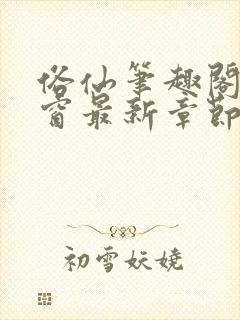 俗仙笔趣阁
窗最新章节
初雪妖娆